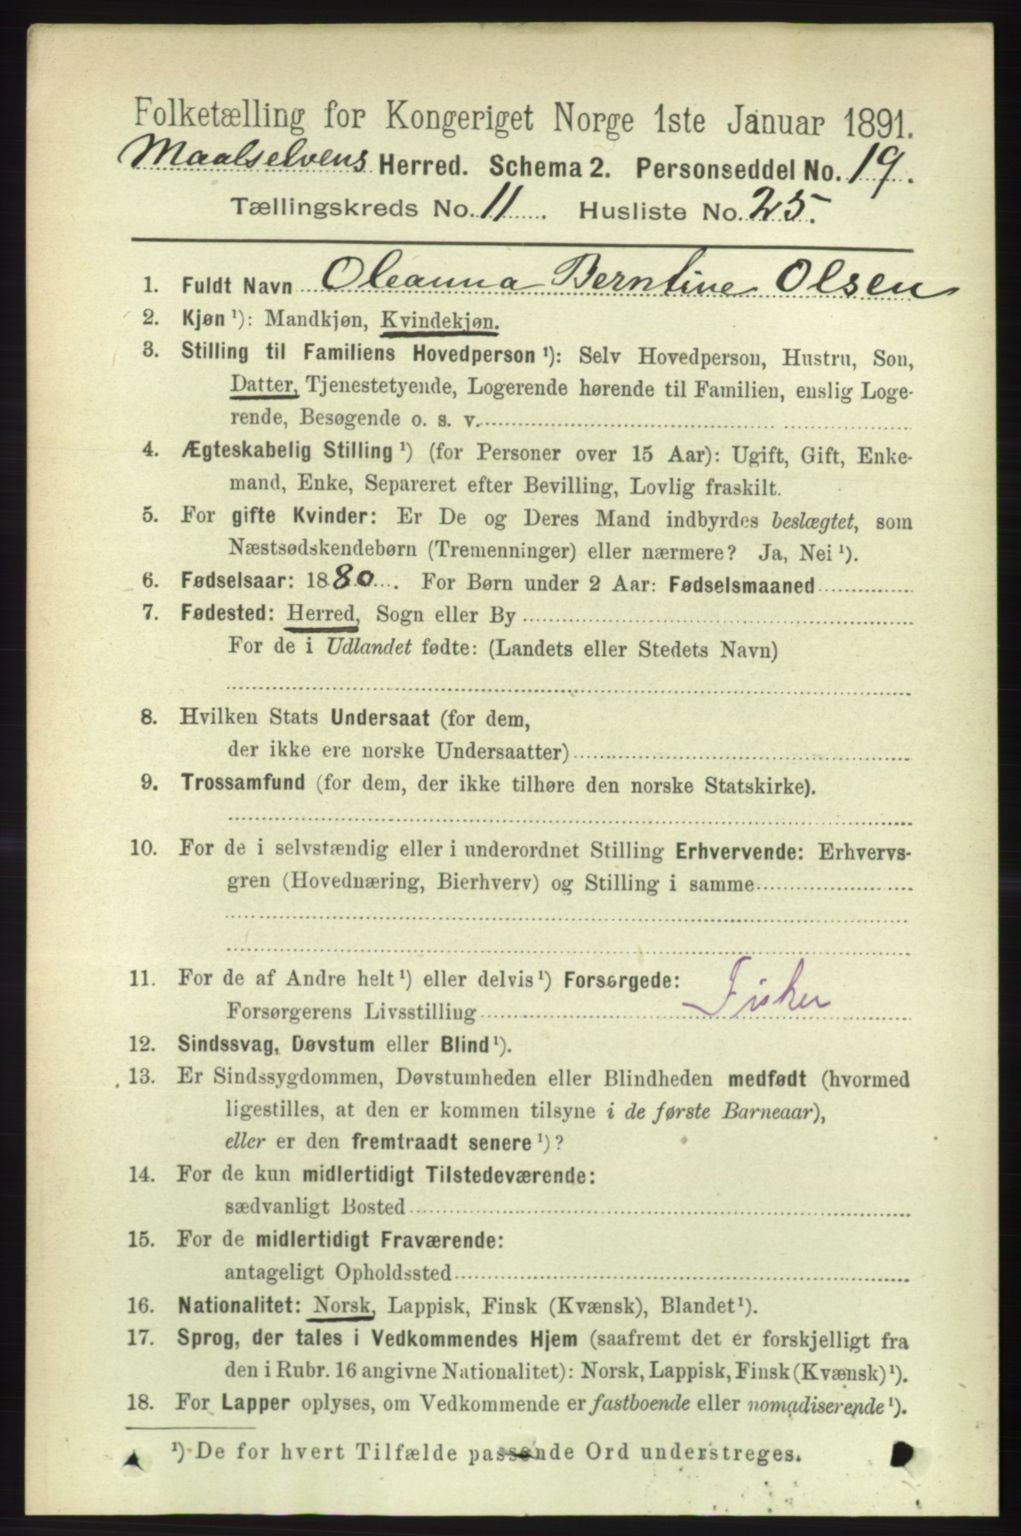 Folketælling for Kongeriget Norge 1ste Januar 1891.
Maalselvens Herred. Schema 2. Personseddel No. 19.
Tællingskreds No. 11. Husliste No. 25.
1. Fuldt Navn Oleanna Berntine Olsen
2. Kjøn ¹): Mandkjøn, Kvindekjøn.
3. Stilling til Familiens Hovedperson ¹): Selv Hovedperson, Hustru, Søn,
Datter, Tjenestetyende, Logerende hørende til Familien, enslig Loge-
rende, Besøgende o. s. v.
4. Ægteskabelig Stilling ¹) (for Personer over 15 Aar): Ugift, Gift, Enke-
mand, Enke, Separeret efter Bevilling, Lovlig fraskilt.
5. For gifte Kvinder: Er De og Deres Mand indbyrdes beslægtet, som
Næstsødskendebørn (Tremenninger) eller nærmere? Ja, Nei ¹).
6. Fødselsaar: 1880. For Børn under 2 Aar: Fødselsmaaned
7. Fødested: Herred, Sogn eller By
For de i Udlandet fødte: (Landets eller Stedets Navn)
8. Hvilken Stats Undersaat (for dem,
der ikke ere norske Undersaatter)
9. Trossamfund (for dem, der ikke tilhøre den norske Statskirke).
10. For de i selvstændig eller i underordnet Stilling Erhvervende: Erhvervs-
gren (Hovednæring, Bierhverv) og Stilling i samme
11. For de af Andre helt ¹) eller delvis ¹) Forsørgede:
Forsørgerens Livsstilling Fisker
12. Sindssvag, Døvstum eller Blind ¹).
13. Er Sindssygdommen, Døvstumheden eller Blindheden medfødt (hvormed
ligestilles, at den er kommen tilsyne i de første Barneaar),
eller er den fremtraadt senere ¹)?
14. For de kun midlertidigt Tilstedeværende:
sædvanligt Bosted
15. For de midlertidigt Fraværende:
antageligt Opholdssted
16. Nationalitet: Norsk, Lappisk, Finsk (Kvænsk), Blandet ¹).
17. Sprog, der tales i Vedkommendes Hjem (saafremt det er forskjelligt fra
den i Rubr. 16 angivne Nationalitet): Norsk, Lappisk, Finsk (Kvænsk) ¹).
18. For Lapper oplyses, om Vedkommende er fastboende eller nomadiserende ¹).
¹) De for hvert Tilfælde passende Ord understreges.